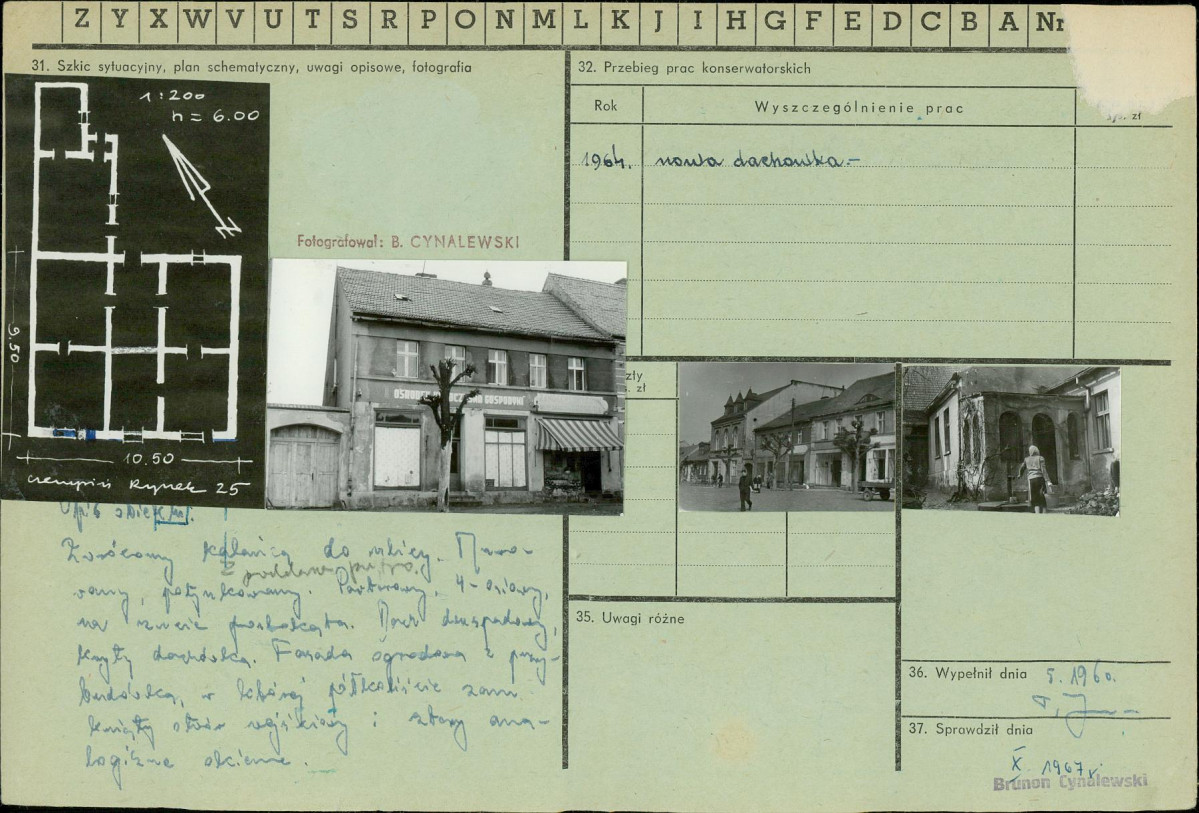 Z Y X W V U T S R P O N M L K J I H G F E D C B A Nr
31. Szkic sytuacyjny, plan schematyczny, uwagi opisowe, fotografia
1:200
h = 6.00
9.50
10.50
Czempiń Rynek 25
Fotografował: B. CYNALEWSKI
GOSPODYNI
Opis obiektu.
Zwrócony kalenicą do ulicy. Muro-
z poddasz. piętro.
wany, potynkowany. Parterowy, 4-osiowy,
na rzucie prostokąta. Dach dwuspadowy,
kryty dachówką. Fasada ogrodowa z przy-
budówką, w której półkoliście zam-
knięty otwór wejściowy i cztery ana-
logiczne okienne.
32. Przebieg prac konserwatorskich
Rok
Wyszczególnienie prac
zł
1964. nowa dachówka –
zły
zł
35. Uwagi różne
36. Wypełnił dnia 5.1960.
37. Sprawdził dnia
X 1967 r.
Brunon Cynalewski